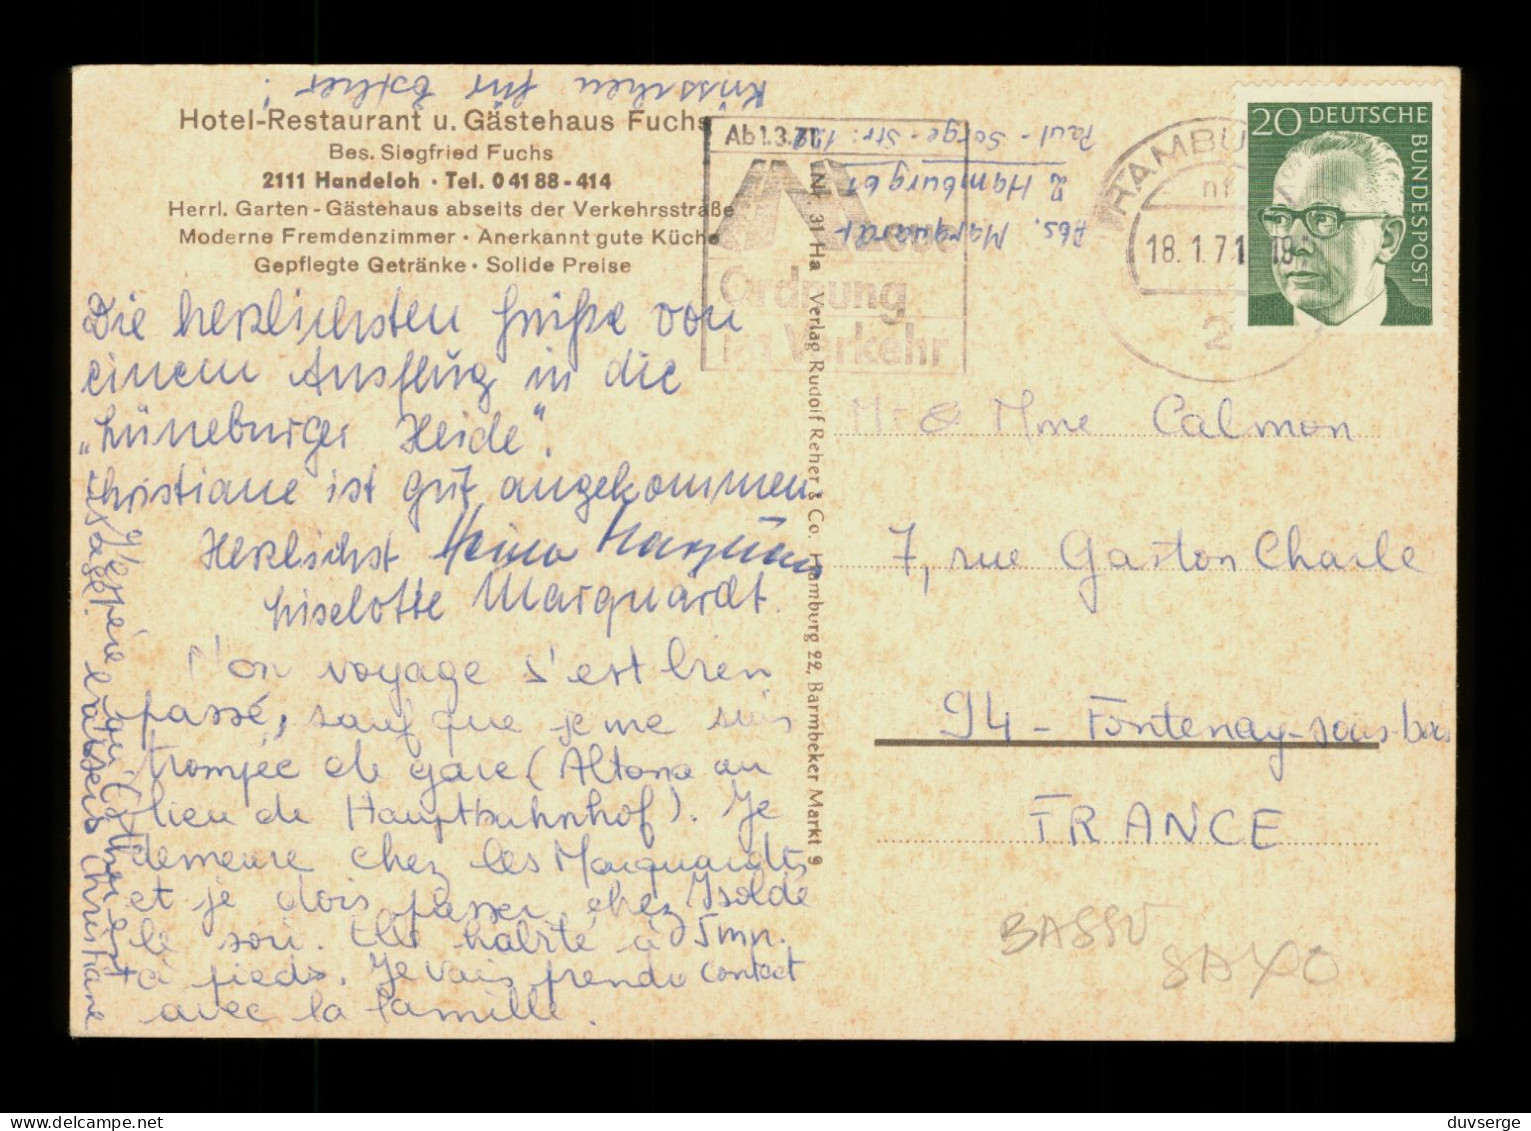 Küsschen für Esther!
Hotel-Restaurant u. Gästehaus Fuchs
Bes. Siegfried Fuchs
2111 Handeloh · Tel. 0 41 88 - 414
Herrl. Garten - Gästehaus abseits der Verkehrsstraße
Moderne Fremdenzimmer · Anerkannt gute Küche
Gepflegte Getränke · Solide Preise
Die herzlichsten Grüße von
einem Ausflug in die
„Lüneburger Heide".
Christiane ist gut angekommen
Herzlichst
Liselotte Marquardt.
M'on voyage s'est bien
passé, sauf que je me suis
trompée de gare (Altona au
lieu de Hauptbahnhof). Je
demeure chez les Marquardts
et je dois passer chez Isolde
le soir. Elle habite à 5mn.
à pieds. Je vais prendre contact
avec la famille.
baisers Christiane
Ab 1.3.71
Neue
Ordnung
im Verkehr
Abs. Marquardt
2 Hamburg 61
Paul-Sorge-Str. 122
Nr. 31 Ha Verlag Rudolf Reher & Co. Hamburg 22, Barmbeker Markt 9
HAMBU
18.1.71-19
2
20 DEUTSCHE
BUNDESPOST
Mr & Mme Calmon
7, rue Gaston Charle
94 - Fontenay-sous-bois
FRANCE
BASSV
SAXO
duvserge